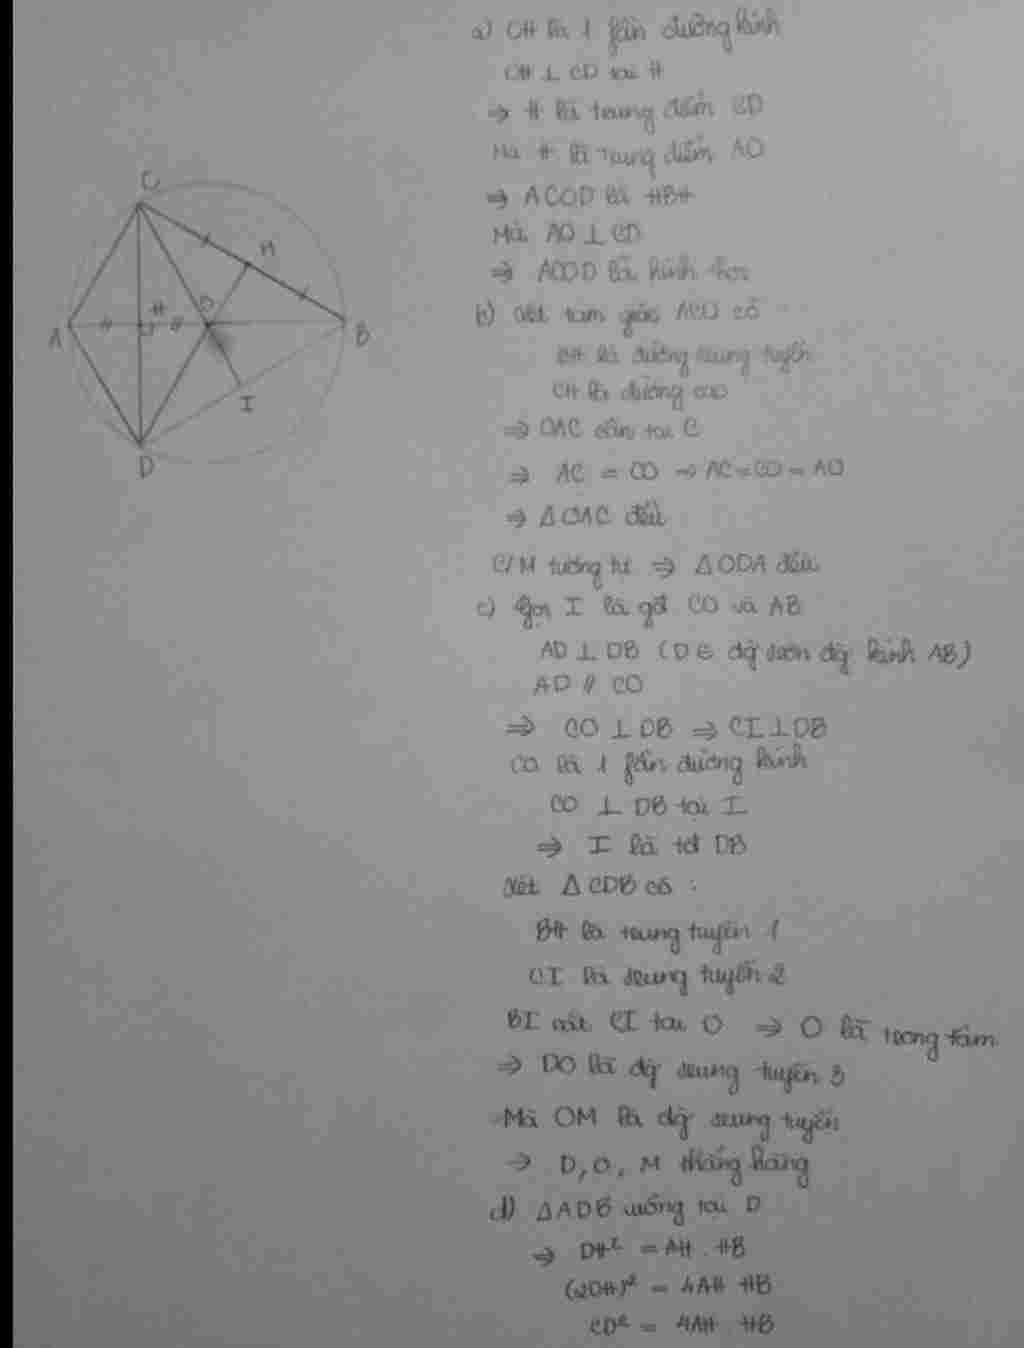 a) OH là 1 fần đường kính
OH ⊥ CD tại H
⇒ H là trung điểm CD
Mà H là trung điểm AO
⇒ ACOD là HBH
Mà AO ⊥ CD
⇒ ACOD là hình thoi
b) Xét tam giác ACO có
là đường trung tuyến
CH là đường cao
⇒ OAC cân tại C
⇒ AC = CO ⇒ AC = CO = AO
⇒ Δ OAC đều
C/M tương tự ⇒ Δ ODA đều
c) Gọi I là gđ CO và AB
AD ⊥ DB (D ∈ đg tròn đg kính AB)
AD // CO
⇒ CO ⊥ DB ⇒ CI ⊥ DB
CO là 1 fần đường kính
CO ⊥ DB tại I
⇒ I là tđ DB
Xét Δ CDB có :
BH là trung tuyến 1
CI là trung tuyến 2
BI cắt CI tại O ⇒ O là trọng tâm
⇒ DO là đg trung tuyến 3
Mà OM là đg trung tuyến
⇒ D, O, M thẳng hàng
d) Δ ADB vuông tại D
⇒ DH² = AH . HB
(2DH)² = 4AH HB
CD² = 4AH HB
C
M
H
O
A
B
I
D